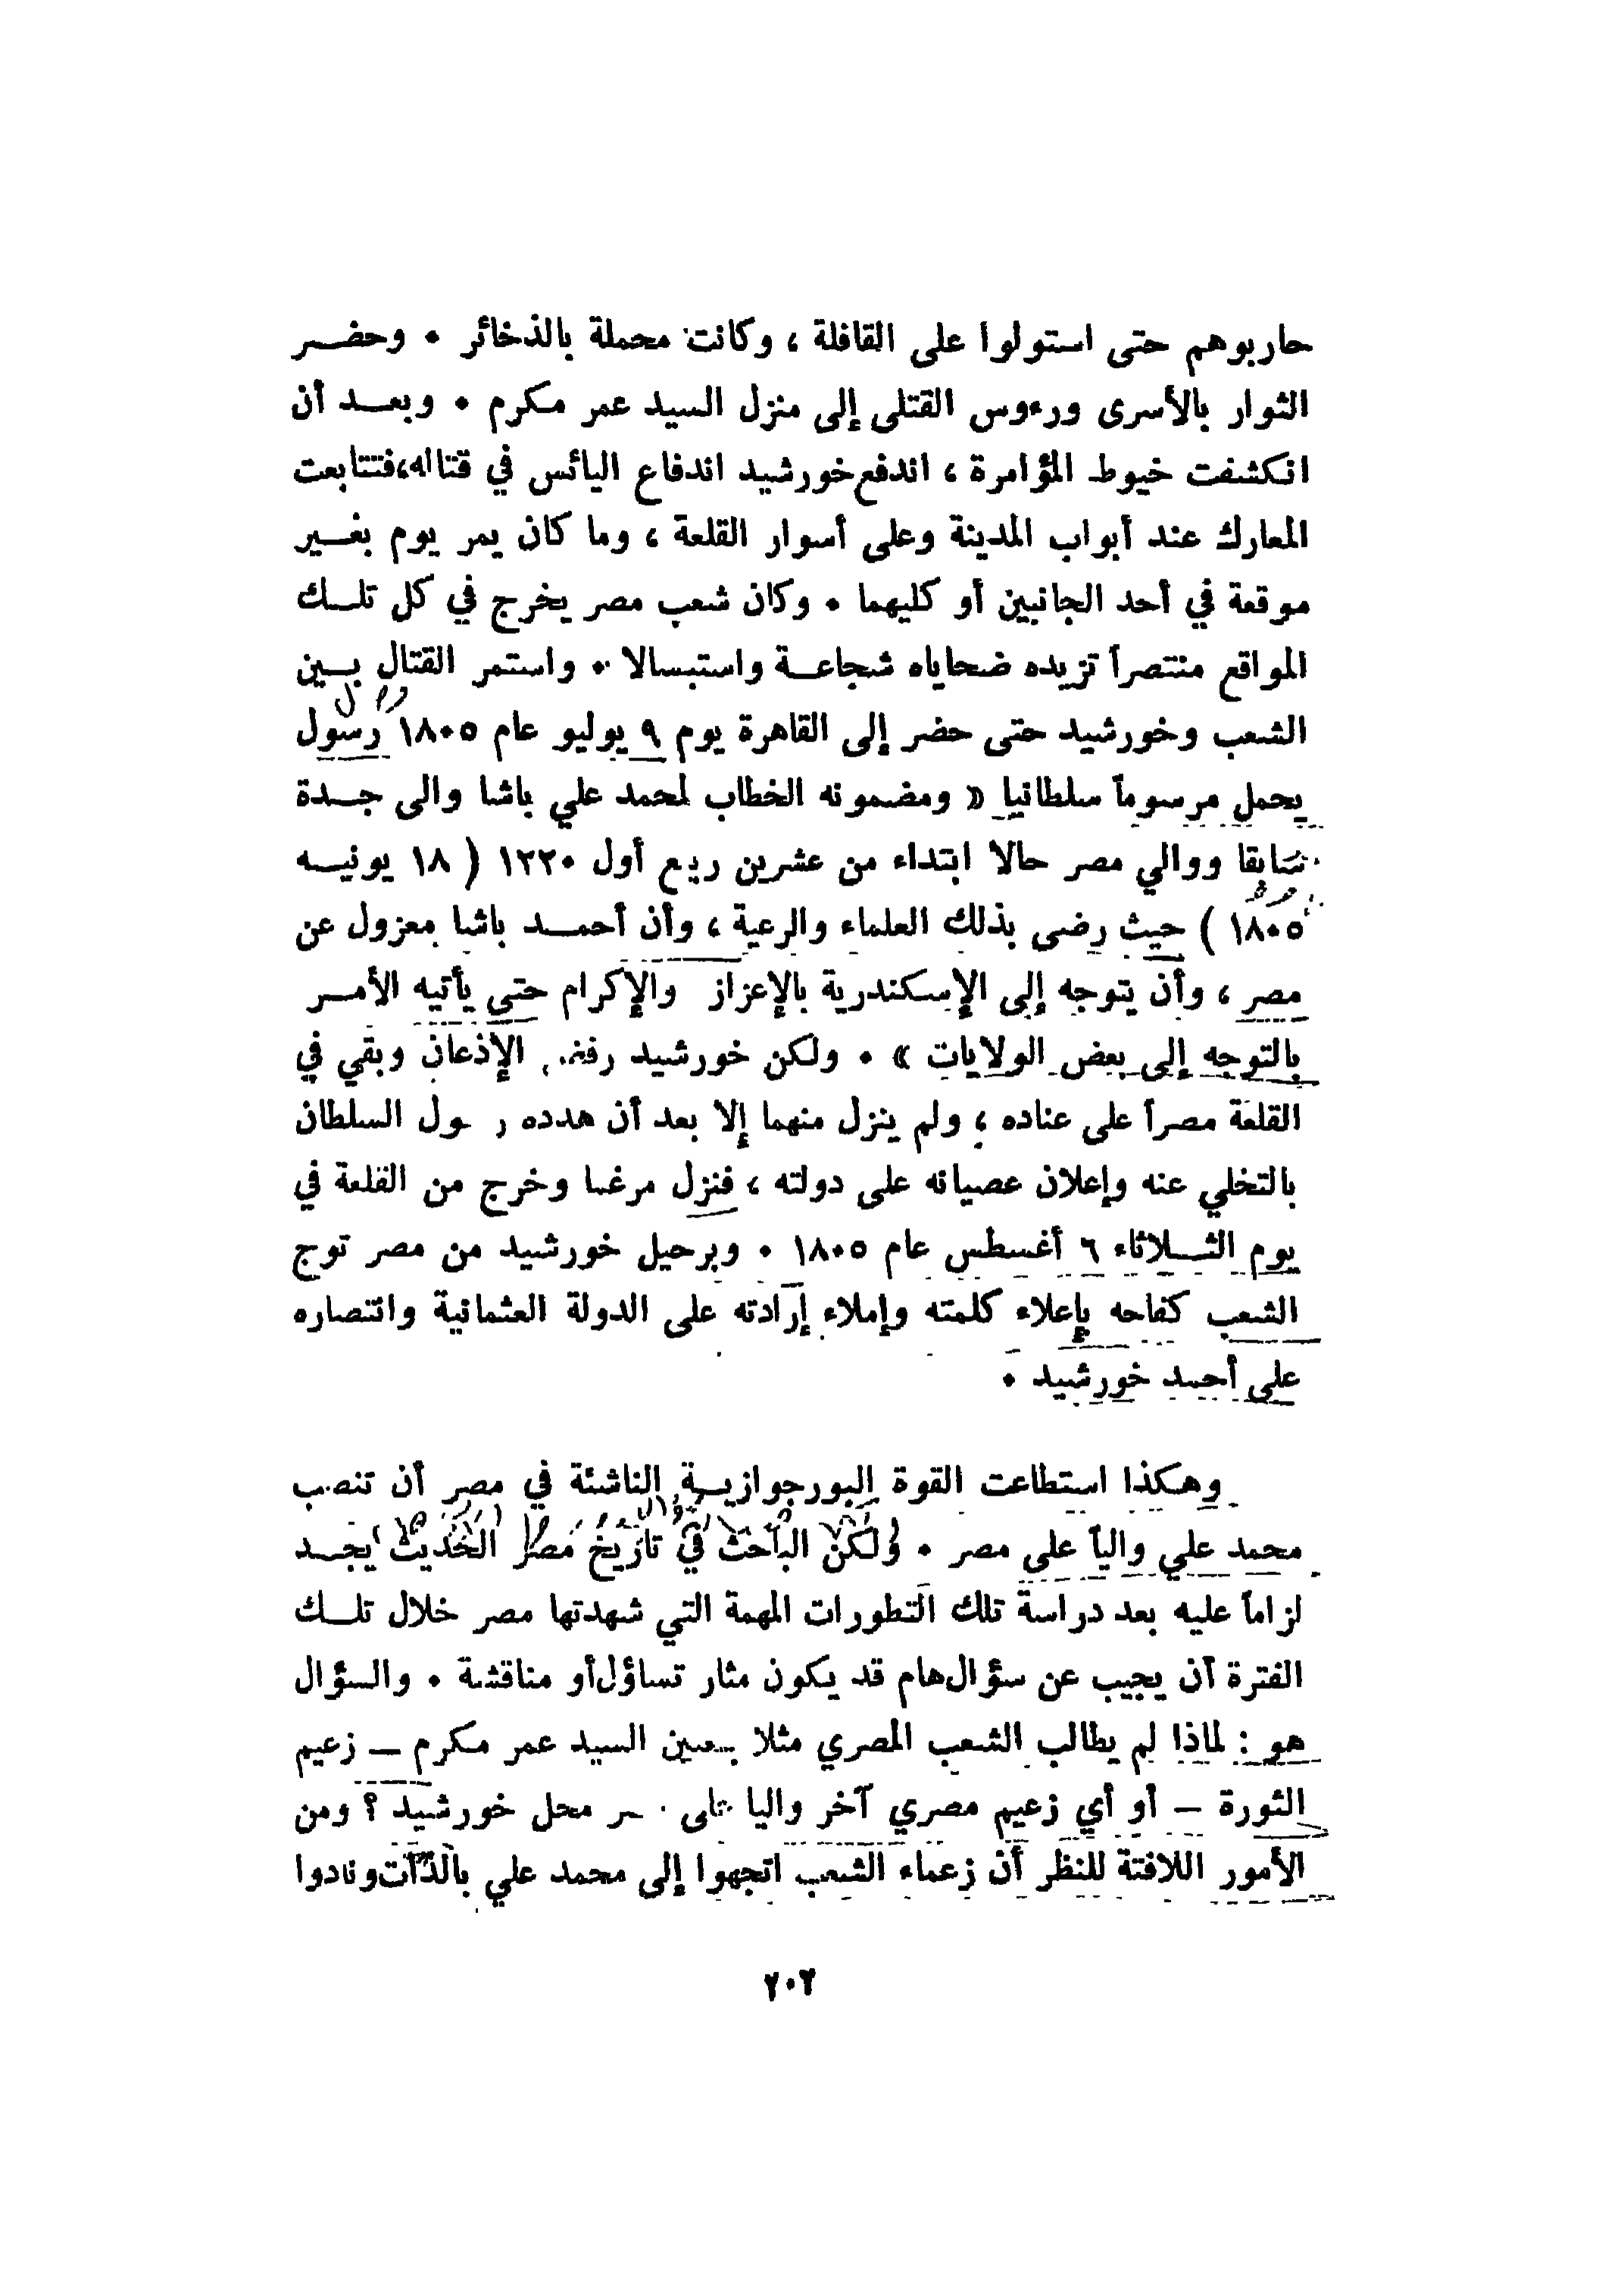 حاربوهم حتى استولوا على القافلة ، وكانت محملة بالذخائر . وحضر
الثوار بالأسرى ورءوس القتلى إلى منزل السيد عمر مكرم . وبعد أن
انكشفت خيوط المؤامرة ، اندفع خورشيد اندفاع اليائس في قتاله،فتتابعت
المعارك عند أبواب المدينة وعلى أسوار القلعة ، وما كان يمر يوم بغير
موقعة في أحد الجانبين أو كليهما . وكان شعب مصر يخرج في كل تلك
المواقع منتصراً تزيده ضحاياه شجاعة واستبسالا . واستمر القتال بين
الشعب وخورشيد حتى حضر إلى القاهرة يوم ٩ يوليو عام ١٨٠٥ رسول
يحمل مرسوماً سلطانيا « ومضمونه الخطاب لمحمد علي باشا والى جدة
سابقا ووالي مصر حالا ابتداء من عشرين ربيع أول ١٢٢٠ ( ١٨ يونيه
١٨٠٥ ) حيث رضى بذلك العلماء والرعية ، وأن أحمد باشا معزول عن
مصر ، وأن يتوجه إلى الإسكندرية بالإعزاز والإكرام حتى يأتيه الأمر
بالتوجه إلى بعض الولايات » . ولكن خورشيد الإذعان وبقي في
القلعة مصراً على عناده ، ولم ينزل منهما إلا بعد أن هدده السلطان
بالتخلي عنه وإعلان عصيانه على دولته ، فنزل مرغما وخرج من القلعة في
يوم الثلاثاء ٦ أغسطس عام ١٨٠٥ . وبرحيل خورشيد من مصر توج
الشعب كفاحه بإعلاء كلمته وإملاء إرادته على الدولة العثمانية وانتصاره
على أحمد خورشيد .
وهكذا استطاعت القوة البورجوازية الناشئة في مصر أن تنصب
محمد علي والياً على مصر . ولكن الباحث في تاريخ مصر الحديث يجد
لزاماً عليه بعد دراسة تلك التطورات المهمة التي شهدتها مصر خلال تلك
الفترة أن يجيب عن سؤال هام قد يكون مثار تساؤل أو مناقشة . والسؤال
هو : لماذا لم يطالب الشعب المصري مثلا السيد عمر مكرم – زعيم
الثورة – أو أي زعيم مصري آخر واليا محل خورشيد ؟ ومن
الأمور اللافتة للنظر أن زعماء الشعب اتجهوا إلى محمد علي بالذات ونادوا
٢٠٢